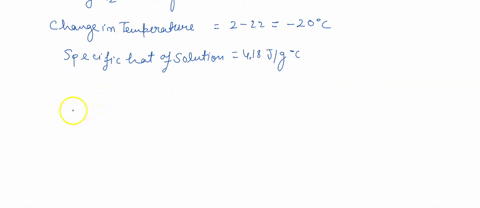 Change in Temperature = 2-22 = -20°C
Specific hat of Solution = 4.18 J/g°C